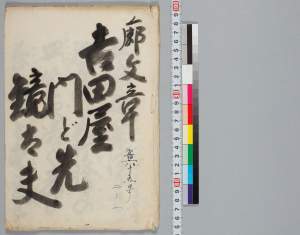 廓文章
吉田屋
門ど先
鏡太夫